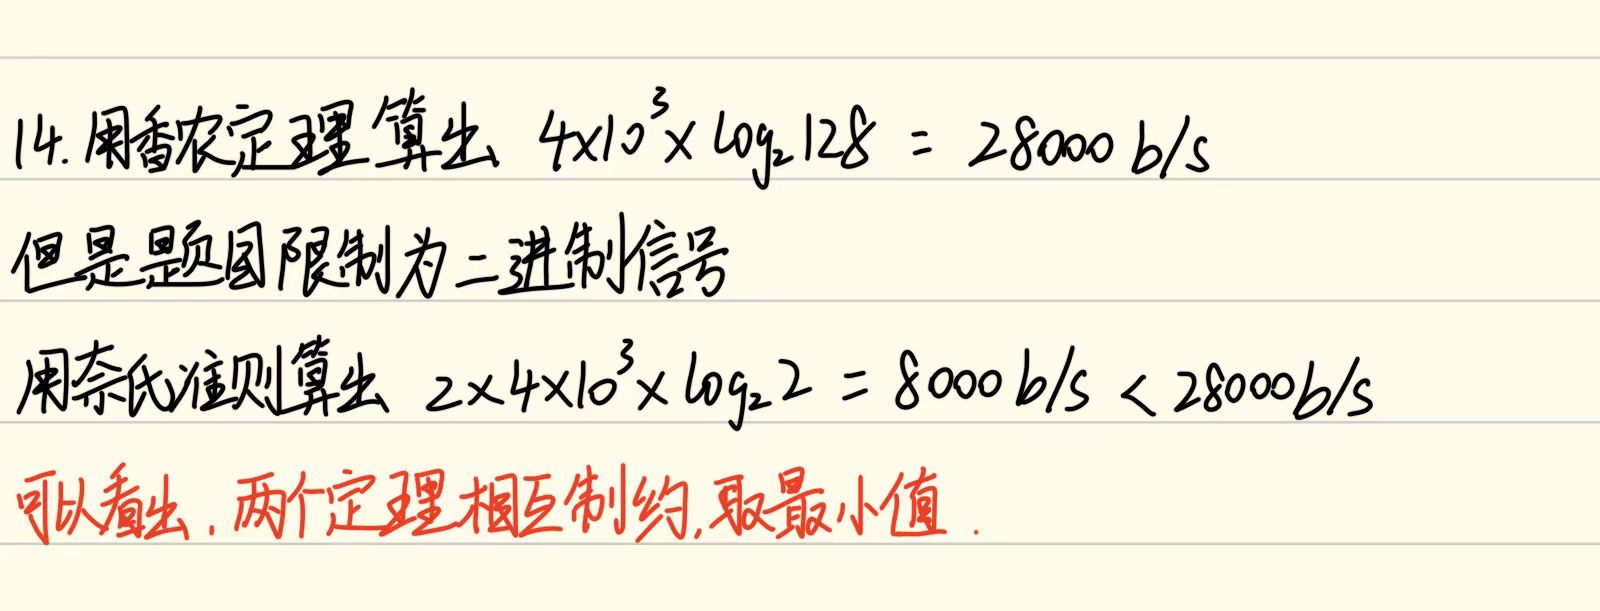 14. 用香农定理算出 4×10³×log₂128 = 28000 b/s
但是题目限制为二进制信号
用奈氏准则算出 2×4×10³×log₂2 = 8000 b/s < 28000b/s
可以看出，两个定理相互制约，取最小值．